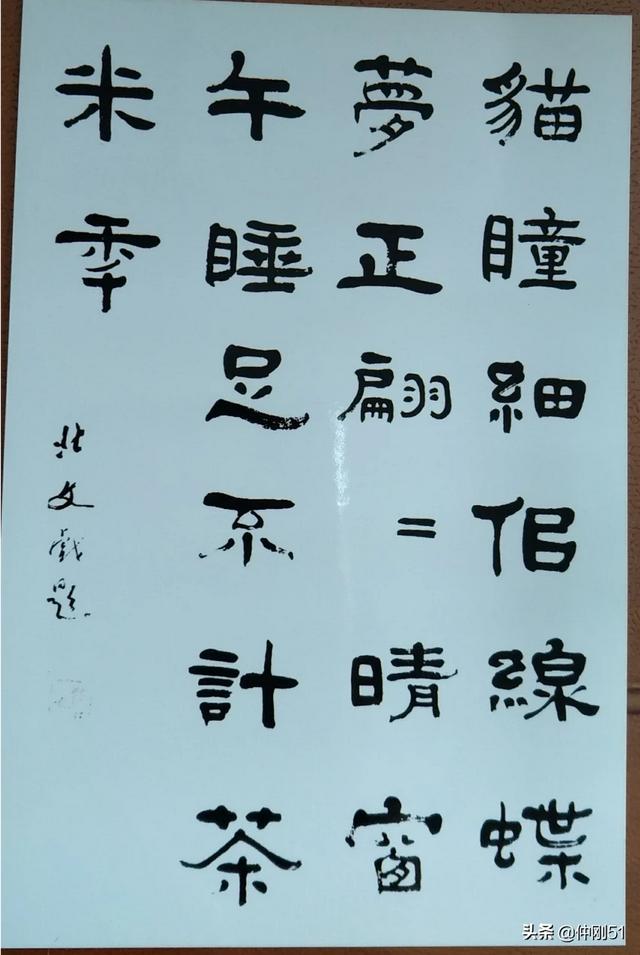 貓瞳細佀線蝶
夢正翩=晴窗
午睡足不計茶
米年
文戲題
头条 @仲刚51